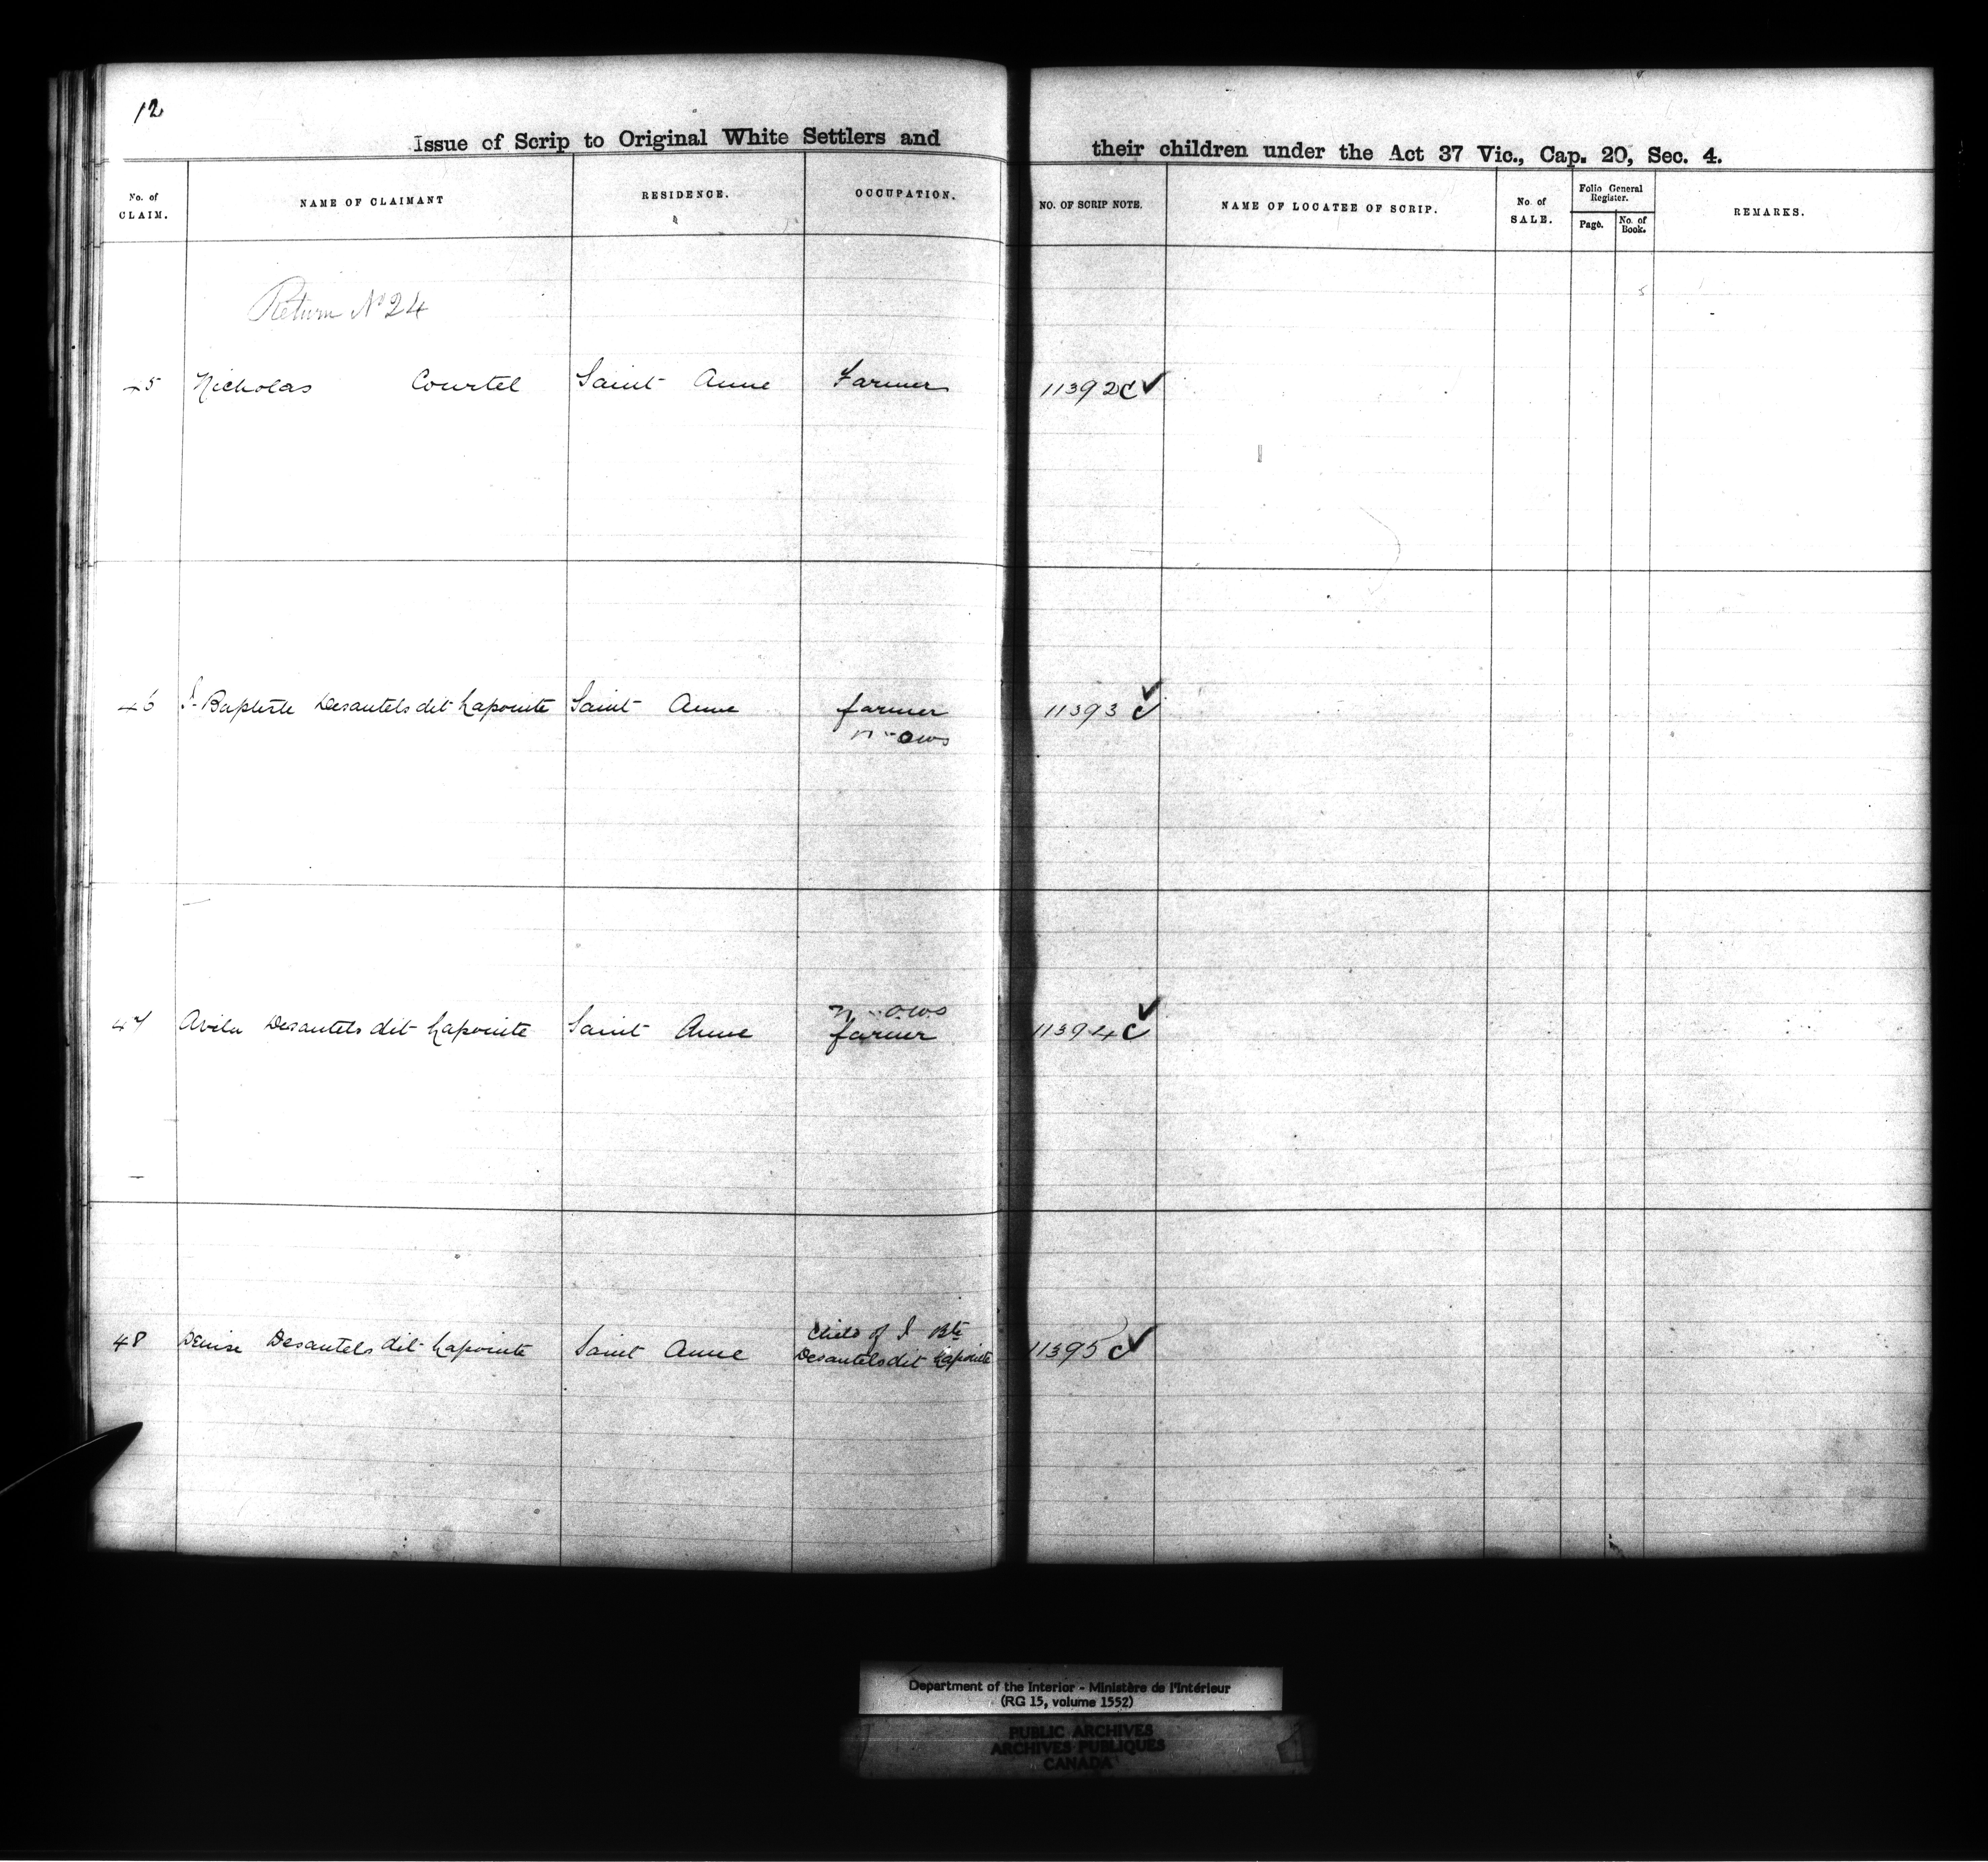 12
Issue of Scrip to Original White Settlers and their children under the Act 37 Vic., Cap. 20, Sec. 4.
No. of CLAIM. NAME OF CLAIMANT RESIDENCE. OCCUPATION. NO. OF SCRIP NOTE. NAME OF LOCATEE OF SCRIP. No. of SALE. Folio General Register. Page. No. of Book. REMARKS.
Return No 24
45 Nicholas Courtel Saint Anne Farmer 11392 C ✓
46 J. Baptiste Desautels dit Lapointe Saint Anne farmer 11393 C ✓
47 Avila Desautels dit Lapointe Saint Anne
farmer 11394 C ✓
48 Denise Desautels dit Lapointe Saint Anne Child of J. Bte
Desautels dit Lapointe 11395 C ✓
Department of the Interior - Ministère de l'Intérieur
(RG 15, volume 1552)
PUBLIC ARCHIVES
ARCHIVES PUBLIQUES
CANADA